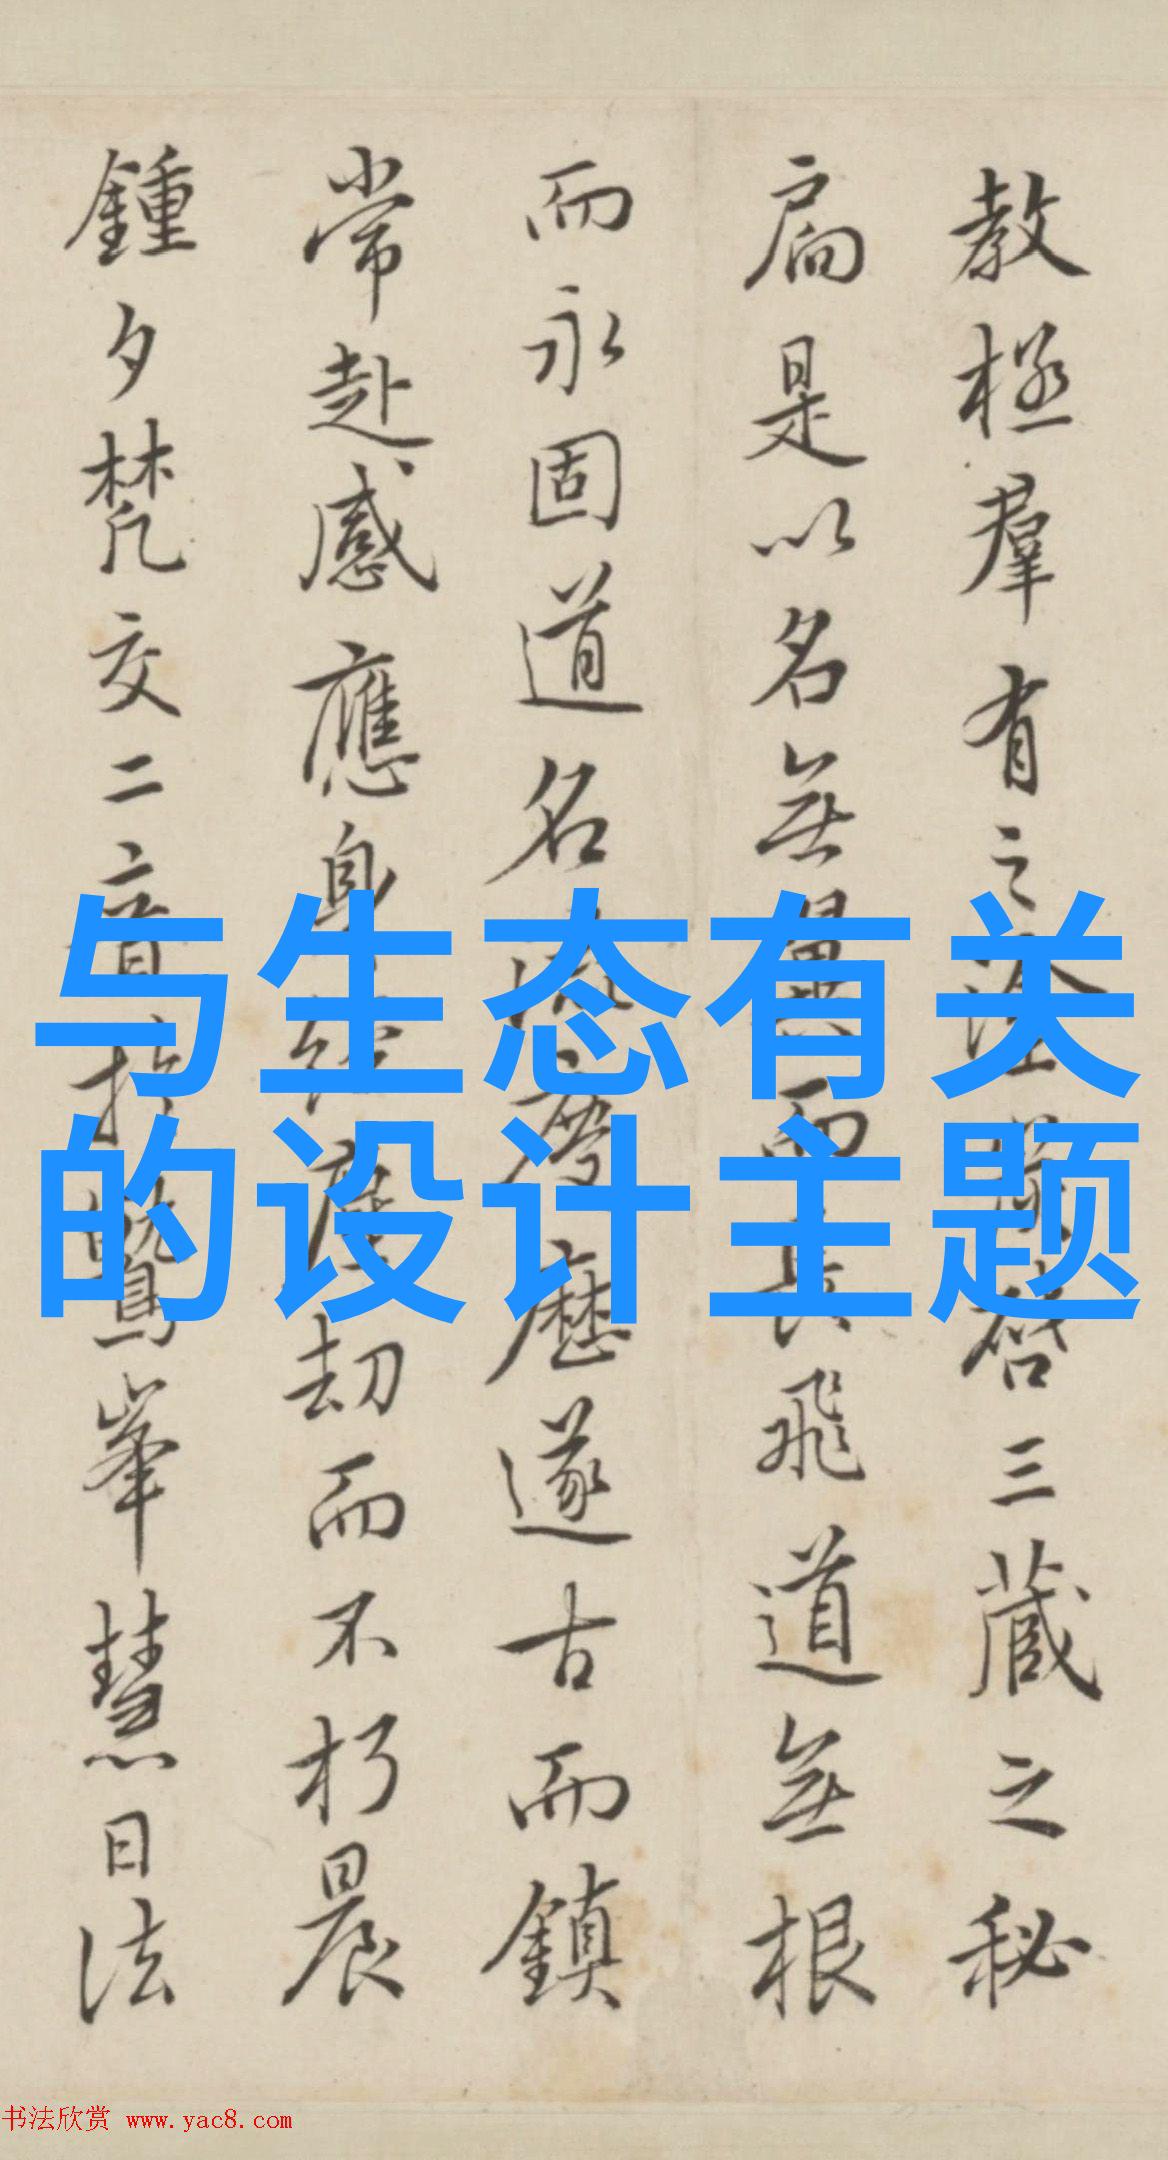 教拯羣有之塗炭啓三藏之秘
扃是以名無翼而長飛道無根
而永固道名流慶歷遂古而鎮
常赴感應身經塵劫而不朽晨
鍾夕梵交二音於鷲峯慧日法
与生态有关
的设计主题
书法欣赏 www.yac8.com